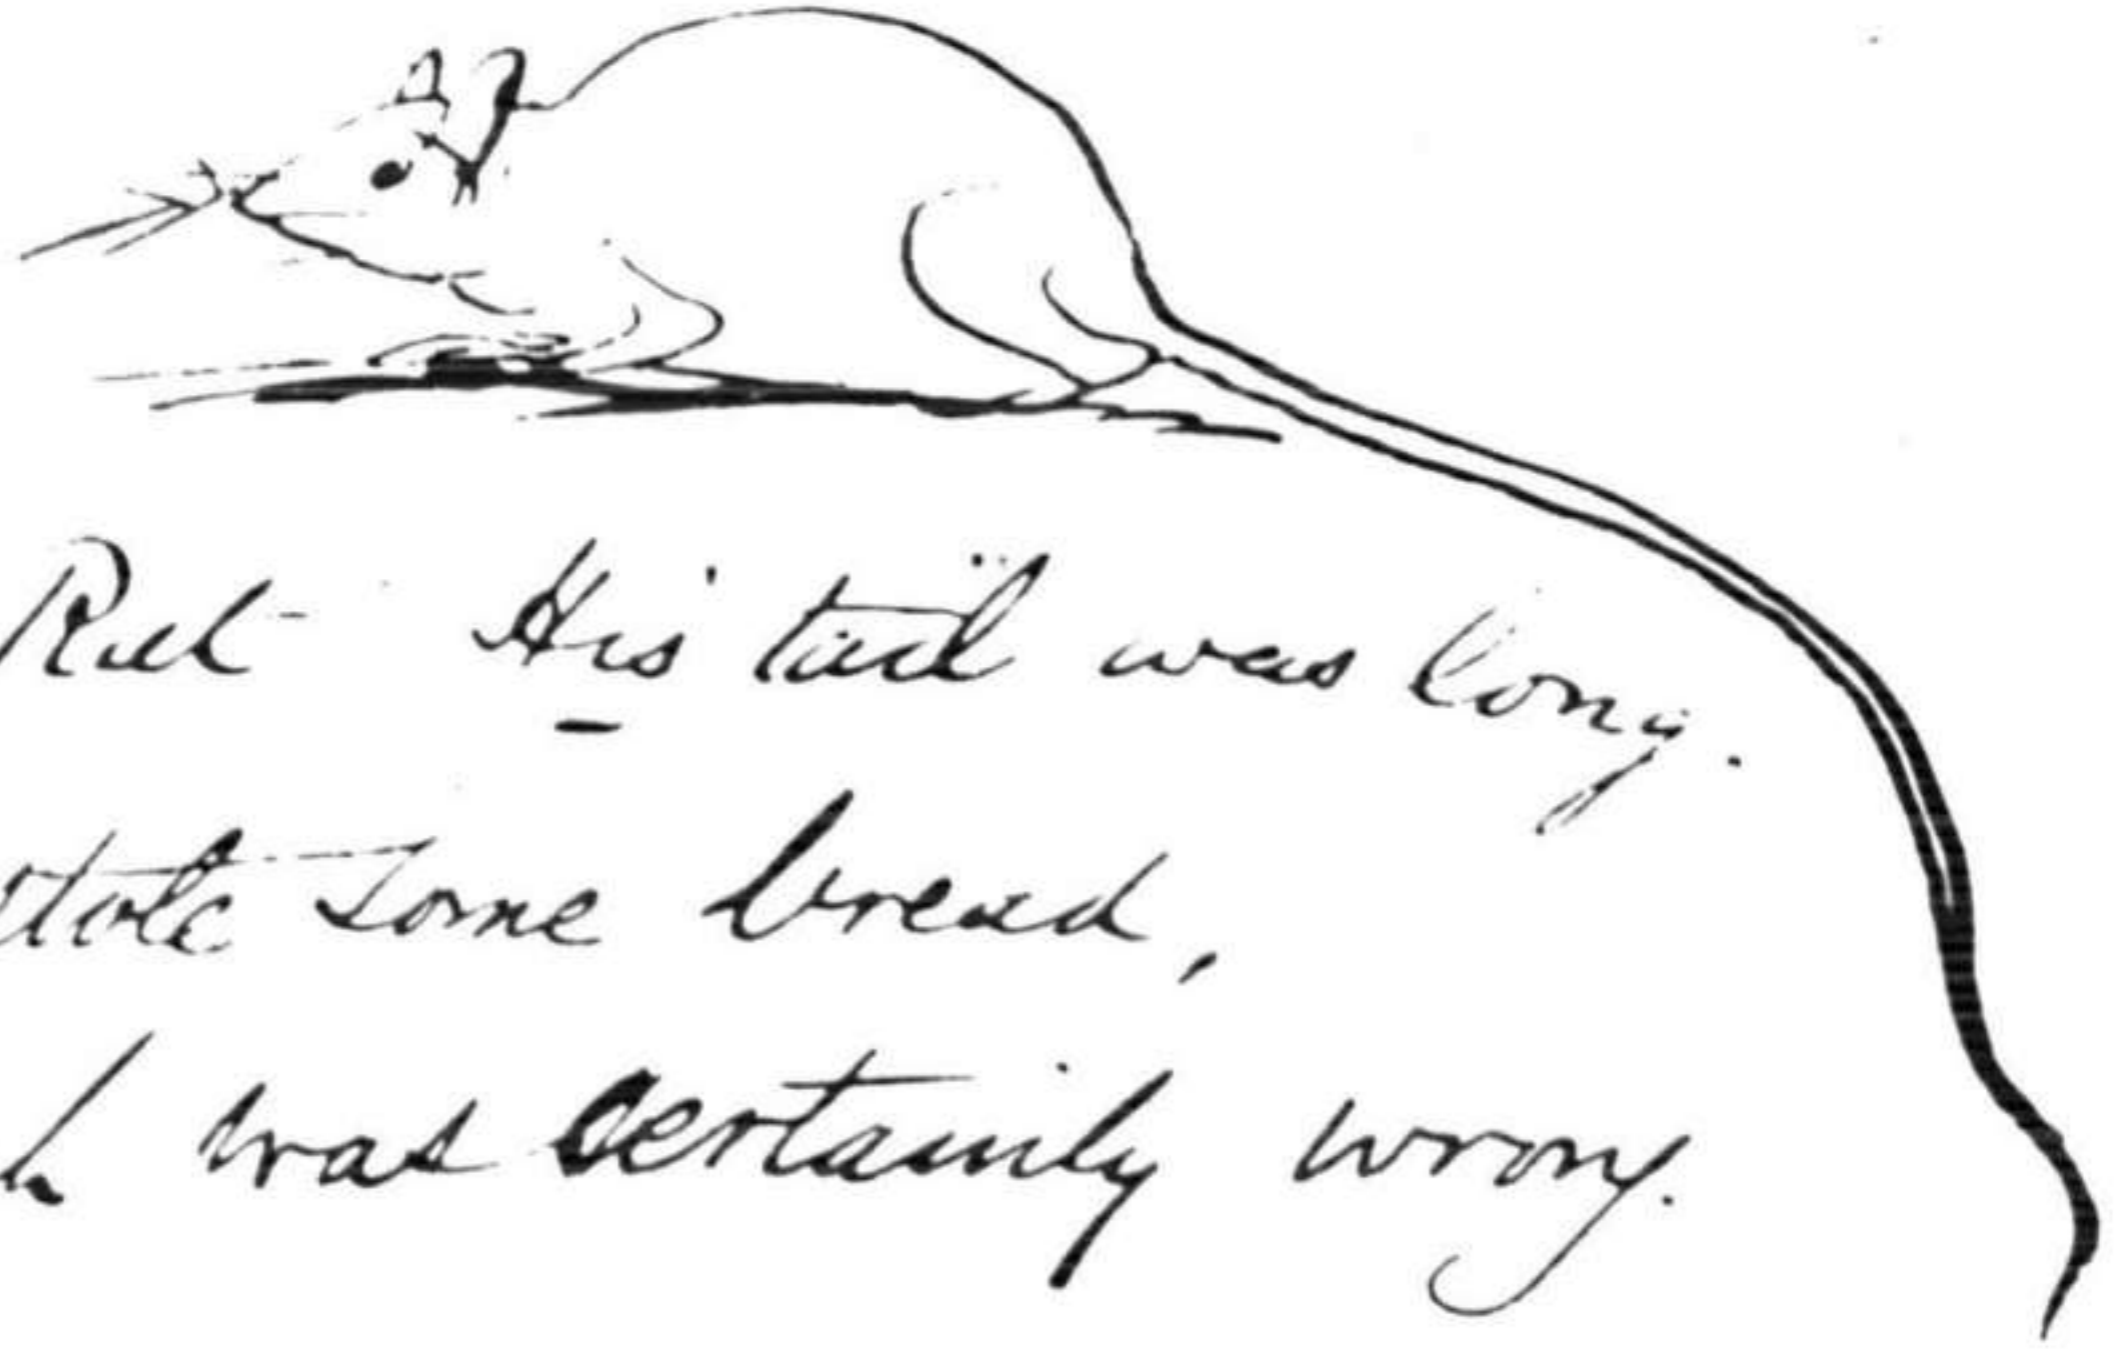 Rat His tail was long.
stole some bread,
h was certainly wrong.